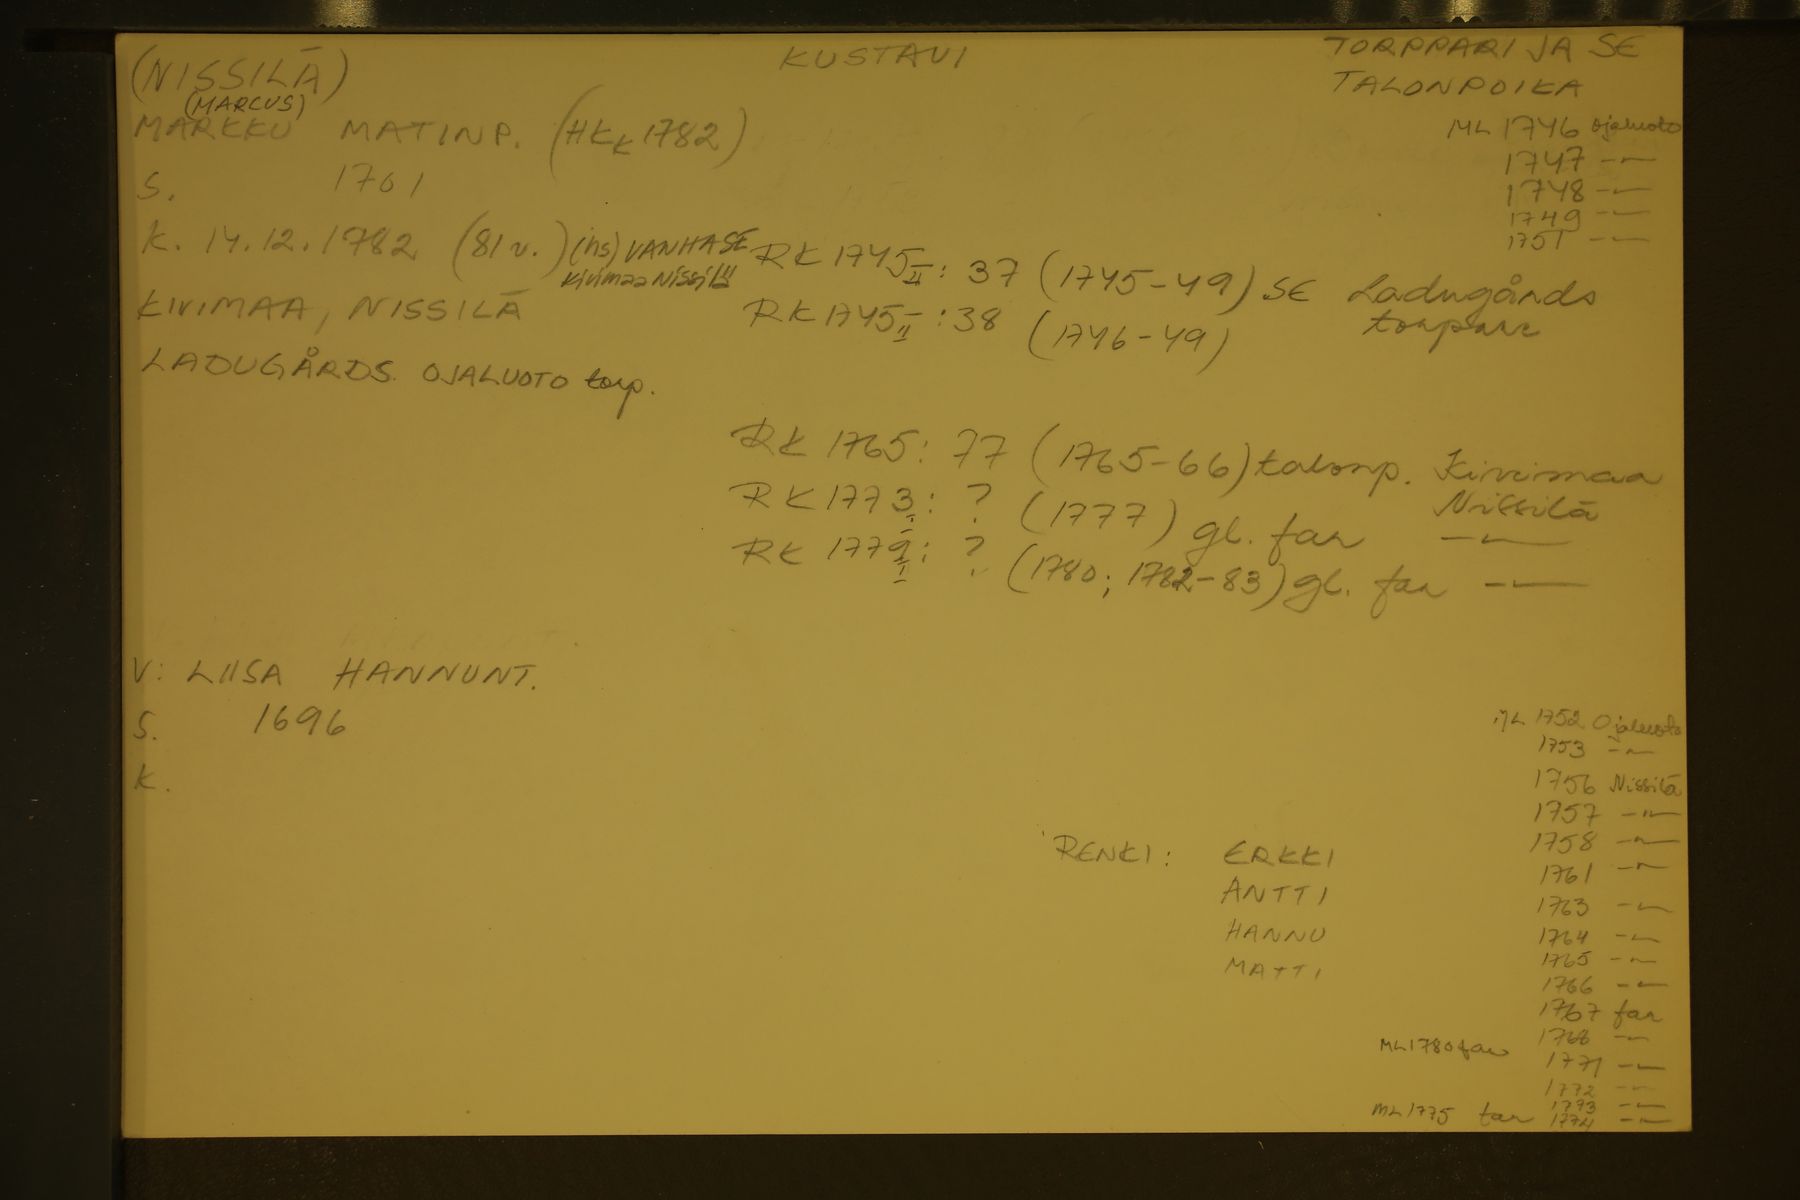 (NISSILÄ)
KUSTAVI
TORPPARI JA SE
TALONPOIKA
(MARCUS)
MARKKU MATINP. (HKK 1782)
S. 1701
K. 14.12.1782 (81 v.) (hs) VANHA SE
Kivimaa Nissilä
KIVIMAA, NISSILÄ
LADUGÅRDS. OJALUOTO torp.
ML 1746 Ojaluoto
1747 -"-
1748 -"-
1749 -"-
1751 -"-
RK 1745 II: 37 (1745-49) SE Ladugårds
torpare
RK 1745 II: 38 (1746-49)
RK 1765: 77 (1765-66) talonp. Kivimaa
Nissilä
RK 1773 I: ? (1777) gl. far -"-
RK 1779 I: ? (1780; 1782-83) gl. far -"-
V: LIISA HANNUNT.
S. 1696
K.
RENKI: ERKKI
ANTTI
HANNU
MATTI
ML 1752 Ojaluoto
1753 -"-
1756 Nissilä
1757 -"-
1758 -"-
1761 -"-
1763 -"-
1764 -"-
1765 -"-
1766 -"-
1767 far
1768 -"-
ML 1780 far 1771 -"-
1772 -"-
1773 -"-
ML 1775 far 1774 -"-